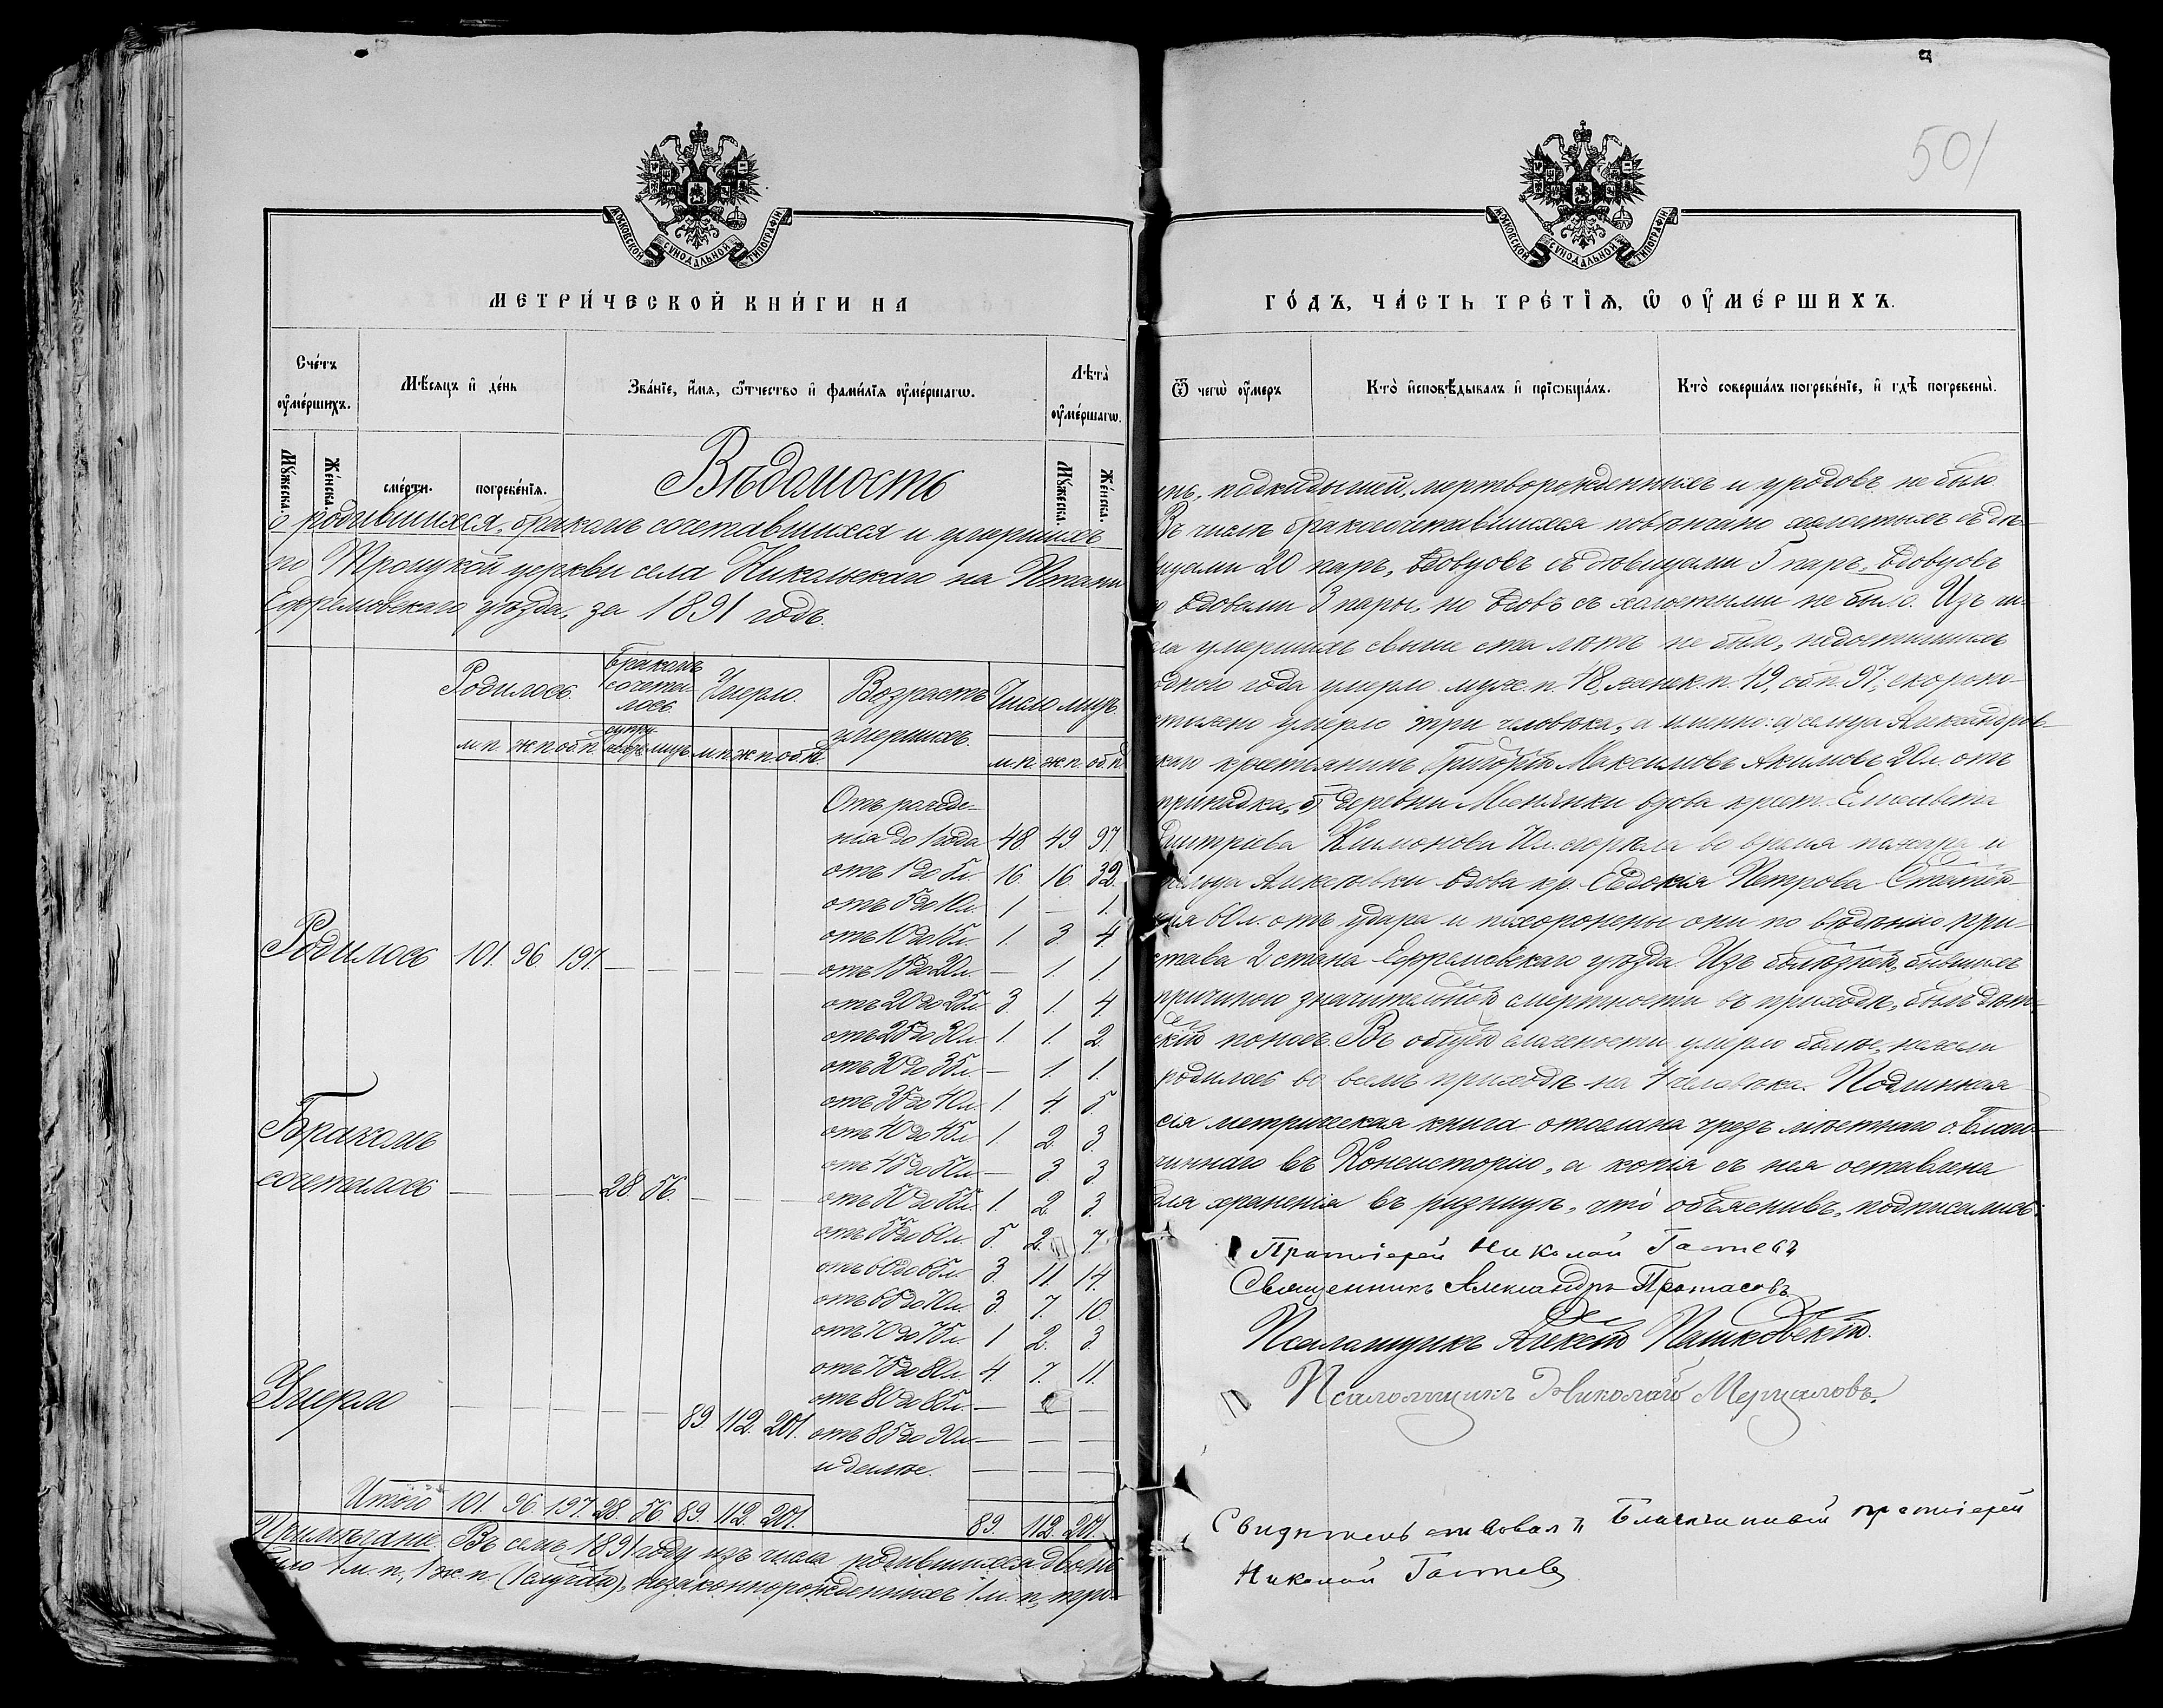 501
МОСКОВСКОЙ СѴНОДАЛЬНОЙ ТИПОГРАФІИ
МОСКОВСКОЙ СѴНОДАЛЬНОЙ ТИПОГРАФІИ
МЕТРИ́ЧЕСКОЙ КНИ́ГИ НА
ГО́ДЪ, ЧА́СТЬ ТРЕ́ТІѦ, Ѡ҆ ОУ҆МЕ́РШИХЪ.
Сче́тъ оу҆ме́ршихъ.
Мѣ́сяцъ и҆ де́нь
Зва́нїе, и҆́мѧ, ѻ҆́тчество и҆ фами́лїѧ оу҆ме́ршагѡ.
Лѣта̀ оу҆ме́ршагѡ.
Ѿ чегѡ̀ оу҆́меръ
Кто̀ и҆сповѣ́дывалъ и҆ прїѡбща́лъ.
Кто̀ соверша́лъ погребе́нїе, и҆ гдѣ̀ погребены̀.
Му́жеска. Же́нска. сме́рти. погребе́нїѧ. Му́жеска. Же́нска.
Вѣдомость
о родившихся, бракомъ сочетавшихся и умершихъ
по Троицкой церкви села Никольскаго на Птани
Ефремовскаго уѣзда, за 1891 годъ.
Родилось. Бракомъ сочеталось Умерло. Возрастъ умершихъ. Число лицъ.
м.п. ж.п. об.п. супружествъ лицъ м.п. ж.п. об.п. м.п. ж.п. об.п.
Отъ рожде-
нія до 1 года 48. 49. 97.
отъ 1 до 5 л. 16. 16. 32.
отъ 5 до 10 л. 1 — 1.
отъ 10 до 15 л. 1. 3. 4.
Родилось 101. 96. 197. — — — — —
отъ 15 до 20 л. — 1. 1.
отъ 20 до 25 л. 3. 1. 4.
отъ 25 до 30 л. 1. 1. 2.
отъ 30 до 35 л. — 1. 1.
отъ 35 до 40 л. 1. 4. 5.
Бракомъ
отъ 40 до 45 л. 1. 2. 3.
отъ 45 до 50 л. — 3. 3.
сочеталось — — — 28. 56. — — —
отъ 50 до 55 л. 1. 2. 3.
отъ 55 до 60 л. 5. 2. 7.
отъ 60 до 65 л. 3. 11. 14.
отъ 65 до 70 л. 3. 7. 10.
отъ 70 до 75 л. 1 2. 3.
отъ 75 до 80 л. 4. 7. 11.
Умерло — — — — — 89 112. 201.
отъ 80 до 85 л. — —
отъ 85 до 90 л. — — —
и далѣе. — — —
Итого 101. 96. 197. 28. 56. 89. 112. 201. 89. 112. 201.
Примѣчаніе. Въ семъ 1891 году изъ числа родившихся двоень
было 1 м. п., 1 ж. п. (1 случай), незаконнорожденныхъ 1 м. п., трое-
нь, подкидышей, мертворожденныхъ и уродовъ не было
Въ числѣ бракосочетавшихся повѣнчано холостыхъ съ дѣ-
вицами 20 паръ, вдовцовъ съ дѣвицами 5 паръ, вдовцовъ
со вдовами 3 пары, но вдовъ съ холостыми не было. Изъ чи-
сла умершихъ свыше ста лѣтъ не было, недостигшихъ
одного года умерло муж. п. 48, женск. п. 49, об. п. 97, скоропо-
стижно умерло три человѣка, а именно: а) сельца Александров-
скаго крестьянинъ Григорій Максимовъ Акимовъ 20 л. отъ
припадка, б) деревни вдова крест. Елисавета
Димитріева 70 л. сгорѣла во время пожара и
сельца вдова кр. Евдокія Петрова
60 л. отъ удара и похоронены они по вѣдѣнію при-
става 2 стана Ефремовскаго уѣзда. Изъ болѣзней, бывшихъ
причиною значительной смертности въ приходѣ, былъ дѣт-
скій поносъ. Въ общей сложности умерло болѣе, нежели
родилось во всемъ приходѣ на 4 человѣка. Подлинная
сія метрическая книга отослана чрезъ мѣстнаго о. Благо-
чиннаго въ Консисторію, а копія съ нея оставлена
для храненія въ ризницѣ, что объяснивъ, подписались:
Протоіерей Николай Гастевъ
Священникъ Александръ Протасовъ
Псаломщикъ Алексѣй Пашковскій.
Псаломщикъ Николай Мерцаловъ.
Свидѣтельствовалъ Благочинный протоіерей
Николай Гастевъ